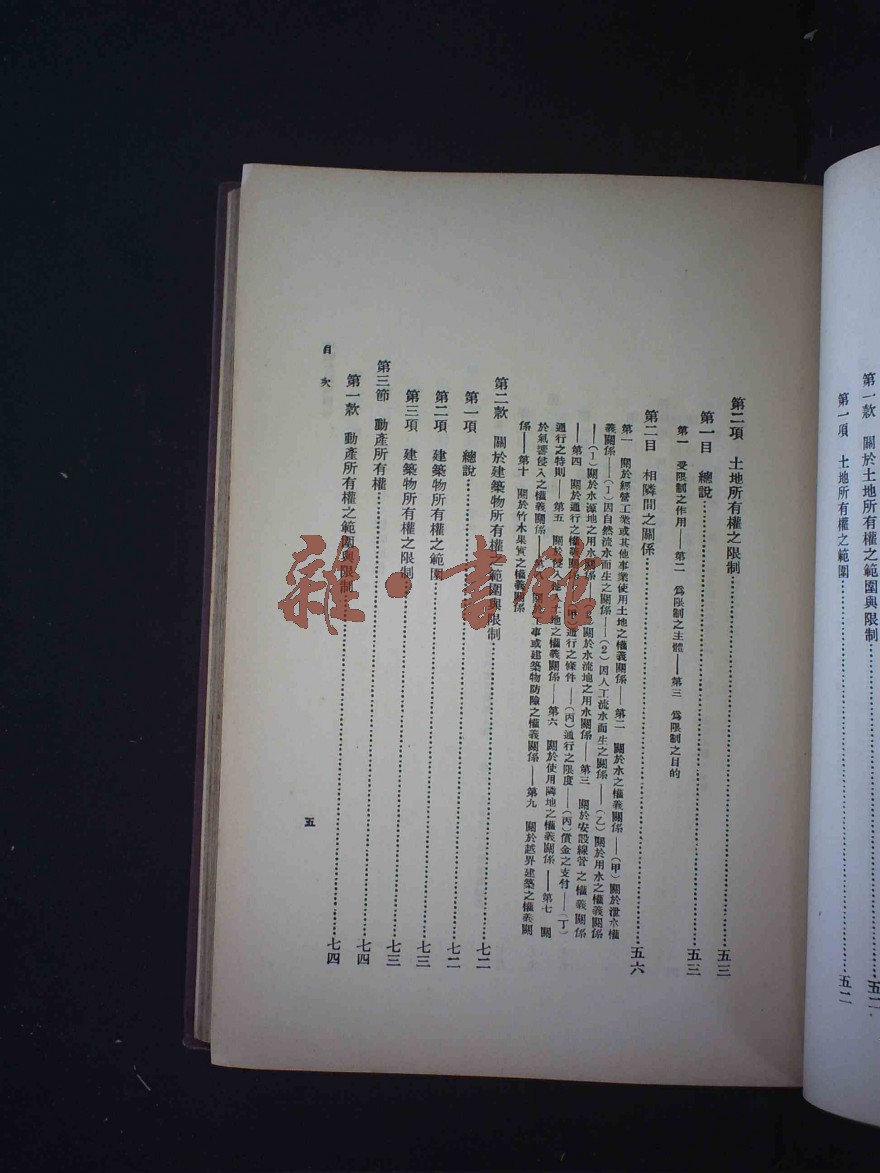 第一款　關於土地所有權之範圍與限制……五二
第一項　土地所有權之範圍……五二
第二項　土地所有權之限制……五三
第一目　總說……五三
第一　受限制之作用——第二　爲限制之主體——第三　爲限制之目的
第二目　相隣間之關係……五六
第一　關於經營工業或其他事業使用土地之權義關係——第二　關於水之權義關係——（甲）關於泄水權
義關係——（1）因自然流水而生之關係——（2）因人工流水而生之關係——（乙）關於用水之權義關係
——（1）關於水源地之用水關係——關於水流地之用水關係——第三　關於安設線管之權義關係
——第四　關於通行之權義關係——（甲）通行之條件——（丙）通行之限度——（丙）償金之支付——（丁）
通行之特則——第五　關於侵入他人土地之權義關係——第六　關於使用隣地之權義關係——第七　關
於氣響侵入之權義關係——第八　關於工事或建築物防險之權義關係——第九　關於越界建築之權義關
係——第十　關於竹木果實之權義關係
第二款　關於建築物所有權之範圍與限制……七二
第一項　總說……七二
第二項　建築物所有權之範圍……七三
第三項　建築物所有權之限制……七三
第三節　動產所有權……七四
第一款　動產所有權之範圍與限制……七四
目次
五
雜·書館